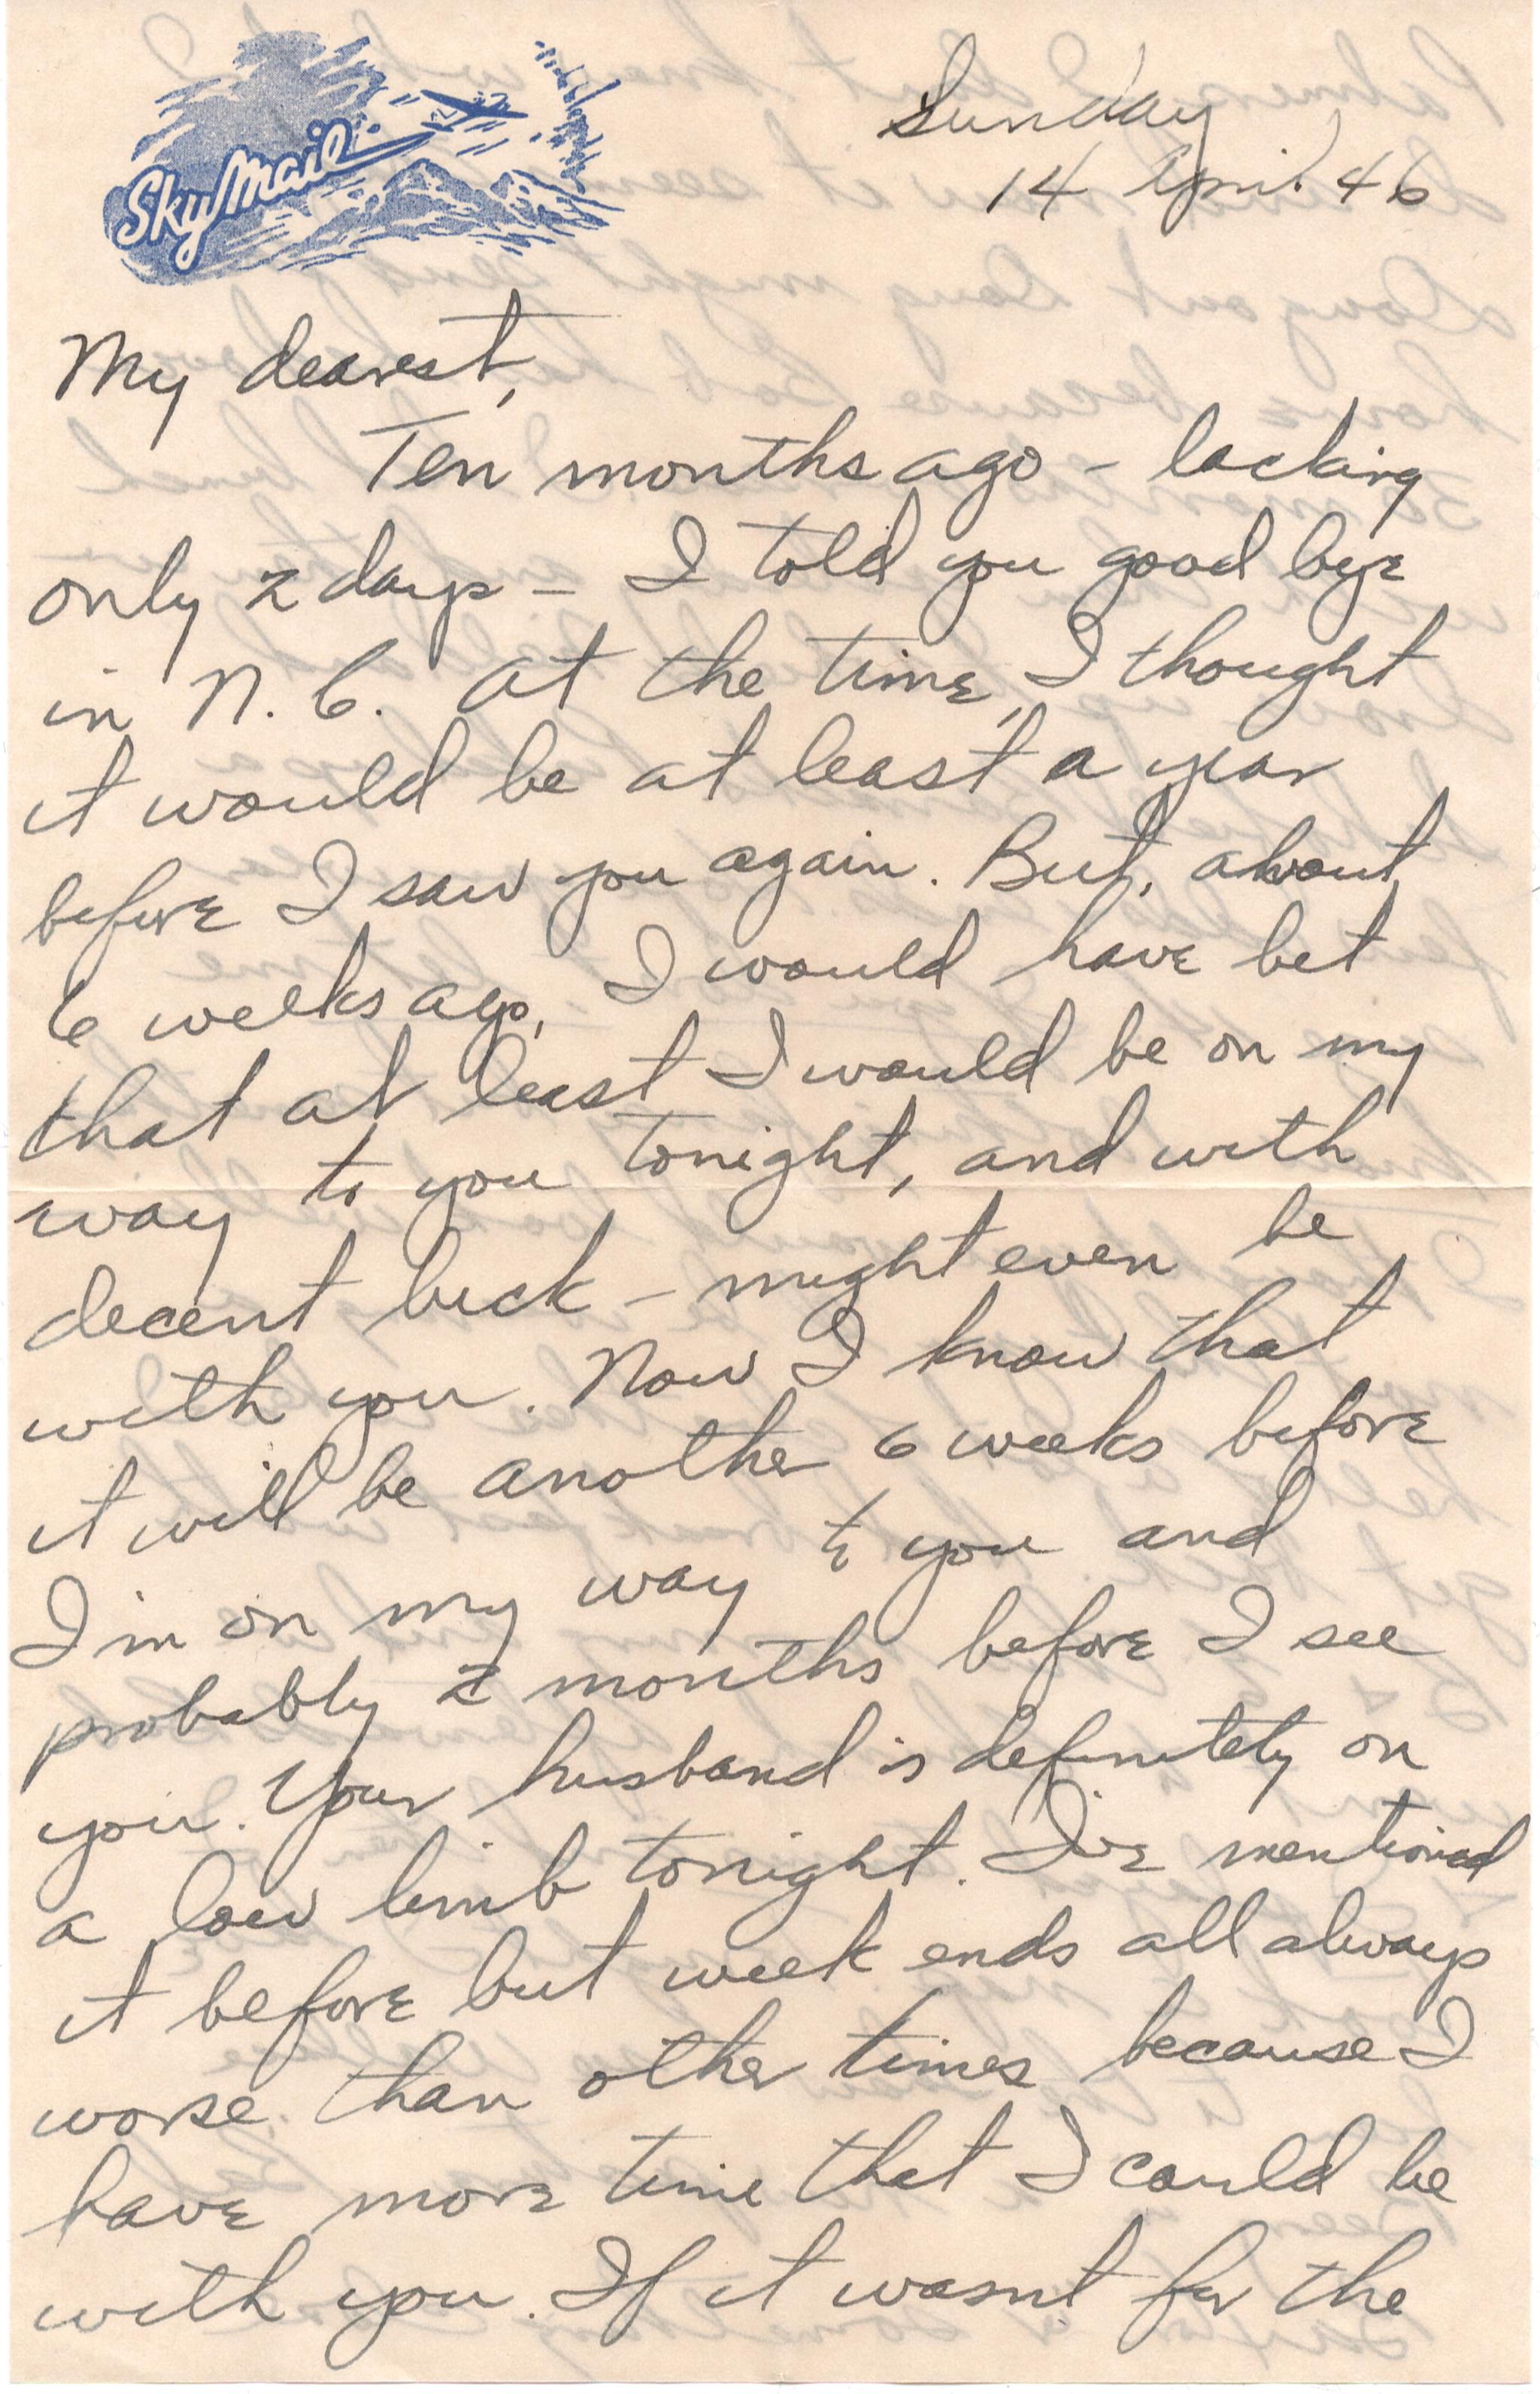 Sky Mail
Sunday
14 April 46
My dearest,
Ten months ago – lacking
only 2 days – I told you good bye
in N. C. At the time, I thought
it would be at least a year
before I saw you again. But, about
6 weeks ago, I would have bet
that at least I would be on my
way to you tonight, and with
decent luck – might even be
with you. Now I know that
it will be another 6 weeks before
I'm on my way to you and
probably 2 months before I see
you. Your husband is definitely on
a low limb tonight. I've mentioned
it before but week ends all always
worse than other times because I
have more time that I could be
with you. If it wasnt for the